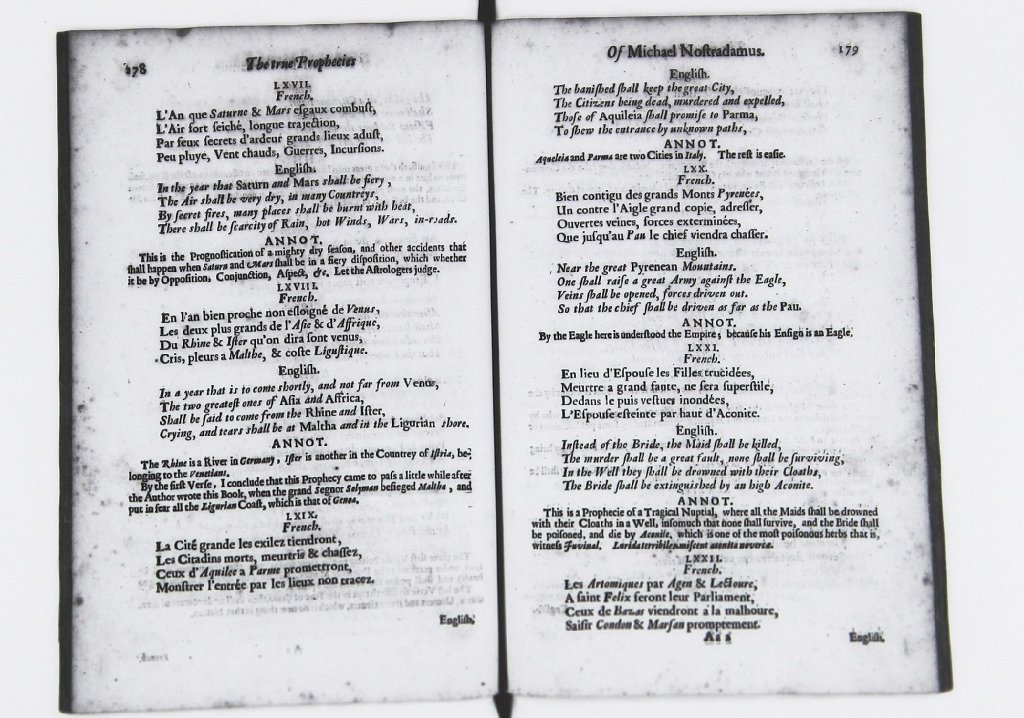 178
The true Prophecies
LXVII.
French.
L'An que Saturne & Mars eſgaux combuſt,
L'Air fort ſeiché, longue trajection,
Par feux ſecrets d'ardeur grands lieux aduſt,
Peu pluye, Vent chauds, Guerres, Incurſions.
Engliſh.
In the year that Saturn and Mars ſhall be fiery,
The Air ſhall be very dry, in many Countreys,
By ſecret fires, many places ſhall be burnt with heat,
There ſhall be ſcarcity of Rain, hot Winds, Wars, in-roads.
ANNOT.
This is the Prognoſtication of a mighty dry ſeaſon, and other accidents that
ſhall happen when Saturn and Mars ſhall be in a fiery diſpoſition, which whether
it be by Oppoſition, Conjunction, Aſpect, &c. Let the Aſtrologers judge.
LXVIII.
French.
En l'an bien proche non eſloigné de Venus,
Les deux plus grands de l'Aſie & d'Affrique,
Du Rhine & Iſter qu'on dira ſont venus,
Cris, pleurs a Malthe, & coſte Liguſtique.
Engliſh.
In a year that is to come ſhortly, and not far from Venus,
The two greateſt ones of Aſia and Affrica,
Shall be ſaid to come from the Rhine and Iſter,
Crying, and tears ſhall be at Maltha and in the Ligurian ſhore.
ANNOT.
The Rhine is a River in Germany, Iſter is another in the Countrey of Iſtria, be-
longing to the Venetians.
By the firſt Verſe, I conclude that this Prophecy came to paſs a little while after
the Author wrote this Book, when the grand Segnor Solyman beſieged Maltha, and
put in fear all the Ligurian Coaſt, which is that of Genoa.
LXIX.
French.
La Cité grande les exilez tiendront,
Les Citadins morts, meurtris & chaſſez,
Ceux d'Aquilee a Parme promettront,
Monſtrer l'entrée par les lieux non tracez.
Engliſh.
Of Michael Noſtradamus.
179
Engliſh.
The baniſhed ſhall keep the great City,
The Citizens being dead, murdered and expelled,
Thoſe of Aquileia ſhall promiſe to Parma,
To ſhew the entrance by unknown paths,
ANNOT.
Aqueltia and Parma are two Cities in Italy. The reſt is eaſie.
LXX.
French.
Bien contigu des grands Monts Pyrenées,
Un contre l'Aigle grand copie, adreſſer,
Ouvertes veines, forces exterminées,
Que juſqu'au Pau le chief viendra chaſſer.
Engliſh.
Near the great Pyrenean Mountains.
One ſhall raiſe a great Army againſt the Eagle,
Veins ſhall be opened, forces driven out.
So that the chief ſhall be driven as far as the Pau.
ANNOT.
By the Eagle here is underſtood the Empire, becauſe his Enſign is an Eagle.
LXXI.
French.
En lieu d'Eſpouſe les Filles trucidées,
Meurtre a grand faute, ne ſera ſuperſtile,
Dedans le puis veſtues inondées,
L'Eſpouſe eſteinte par haut d'Aconite.
Engliſh.
Inſtead of the Bride, the Maid ſhall be killed,
The murder ſhall be a great fault, none ſhall be ſurviving,
In the Well they ſhall be drowned with their Cloaths,
The Bride ſhall be extinguiſhed by an high Aconite.
ANNOT.
This is a Prophecie of a Tragical Nuptial, where all the Maids ſhall be drowned
with their Cloaths in a Well, inſomuch that none ſhall ſurvive, and the Bride ſhall
be poiſoned, and die by Aconite, which is one of the moſt poiſonous herbs that is,
witneſs Juvinal. Lurida terribiles miſcent aconita novercæ.
LXXII.
French.
Les Artomiques par Agen & Lectoure,
A ſaint Felix feront leur Parliament,
Ceux de Bazas viendront a la malhoure,
Saiſir Condon & Marſan promptement.
Aa 2
Engliſh.